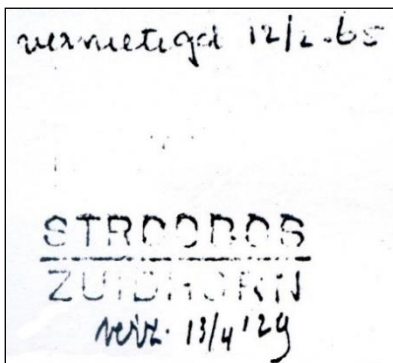 vernietigd 12/2-65
STROOBOS
ZUIDHORN
verz. 13/4 '29